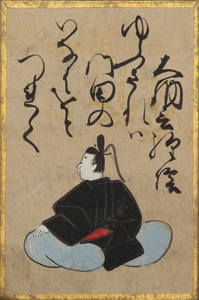 大納言経信
ゆふされハ
門田の
いなはをと
つれて